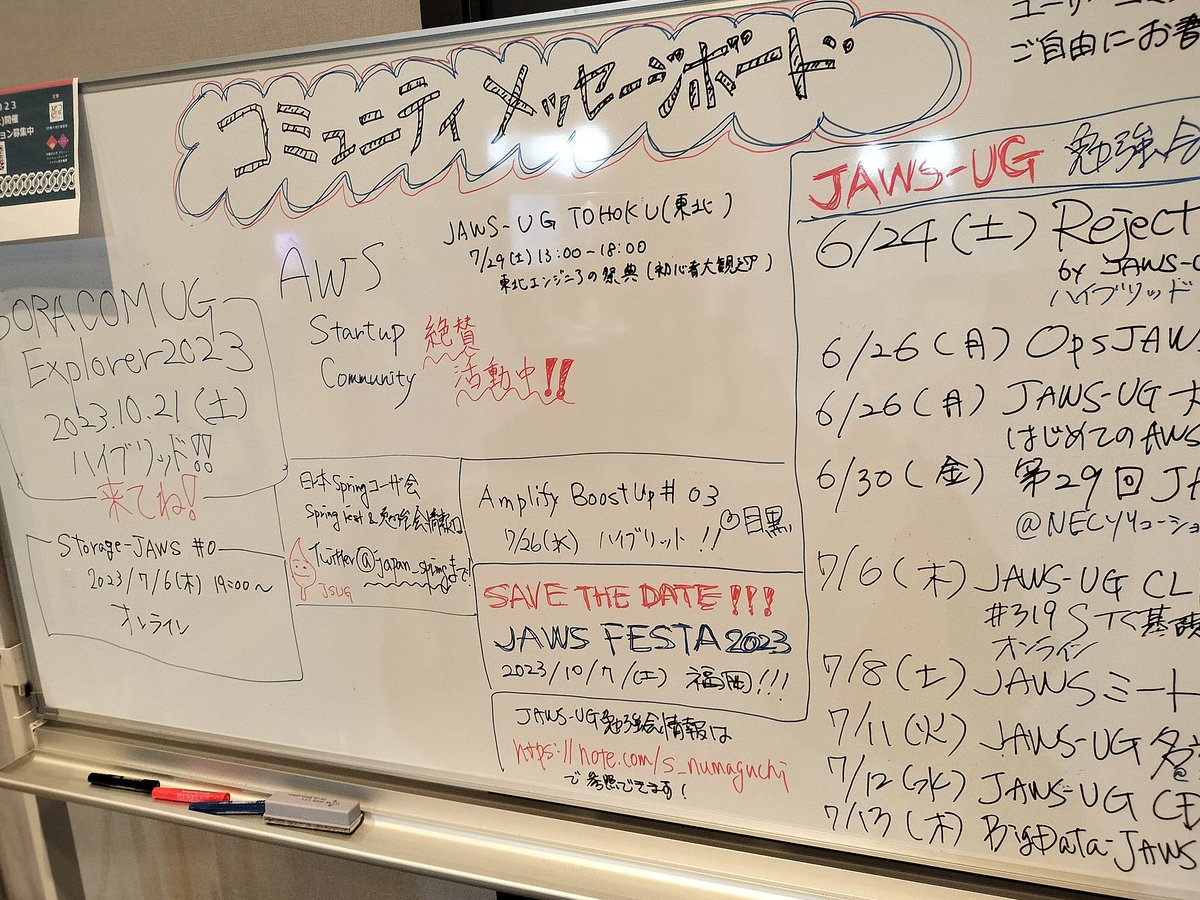 コミュニティメッセージボード
ご自由にお書
2023
開催
ョン募集中
JAWS-UG TOHOKU(東北)
7/29(土)13:00~18:00
東北エンジニアの祭典(初心者大歓迎)
AWS
Startup 絶賛
Community 活動中!!
SORACOM UG
Explorer2023
2023.10.21(土)
ハイブリッド!!
来てね!
Storage-JAWS #0
2023/7/6(木) 19:00~
オンライン
日本Springユーザ会
Spring Fest & 勉強会情報は
Twitter@japan_springまで
JSUG
Amplify BoostUp # 03
7/26(水) ハイブリット!! @目黒
SAVE THE DATE!!!
JAWS FESTA2023
2023/10/7/(土) 福岡!!!
JAWS-UG勉強会情報は
https://note.com/s_numaguchi
で参照できます!
JAWS-UG 勉強会
6/24(土) Reject
by JAWS-U
ハイブリッド
6/26(月) OpsJAWS
6/26(月) JAWS-UG
はじめてのAWS
6/30(金) 第29回 JA
@NECソリューショ
7/6(木) JAWS-UG CL
#319 STS基礎
オンライン
7/8(土) JAWSミート
7/11(火) JAWS-UG 名
7/12(水) JAWS-UG CD
7/13(木) BigData-JAWS